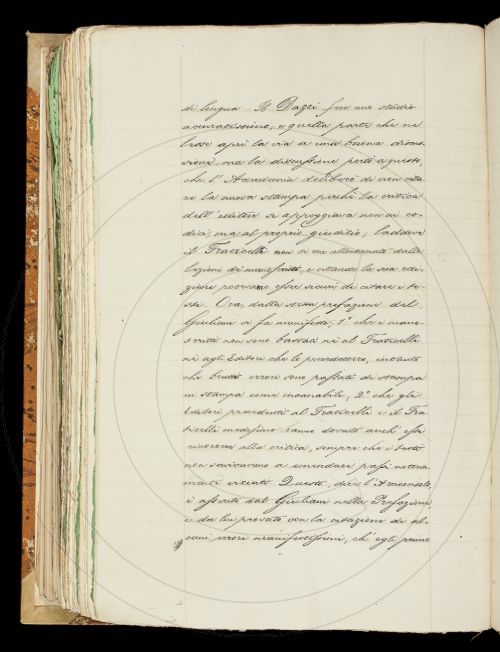 di lingua. Il Dazzi fece uno studio
accuratissimo, e quella parte che ne
lesse aprì la via a una buona discus-
sione, ma la discussione portò a questo,
che l'Accademia deliberò di non cita-
re la nuova stampa perchè la critica
dell'editore si appoggiava non ai co-
dici, ma al proprio giudizio; laddove
il Fraticelli non si era allontanato dalla
lezione di manoscritti, e citando la sua edi-
zione potevamo esser sicuri di citare i te-
sti. Ora, dalla stessa prefazione del
Giuliani si fa manifesto, 1.° che i mano-
scritti non sono bastati nè al Fraticelli
nè agli Editori che lo precedettero, intanto
che brutti errori sono passati di stampa
in stampa come insanabili; 2.° che gli
Editori precedenti al Fraticelli e il Fra-
ticelli medesimo hanno dovuto anch'essi
ricorrere alla critica, sempre che i testi
non servivano a emendare passi notoria-
mente viziati. Questo, dice l'Arciconsolo,
è asserito dal Giuliani nella Prefazione
e da lui provato con la citazione di al-
cuni errori manifestissimi, ch'egli primo